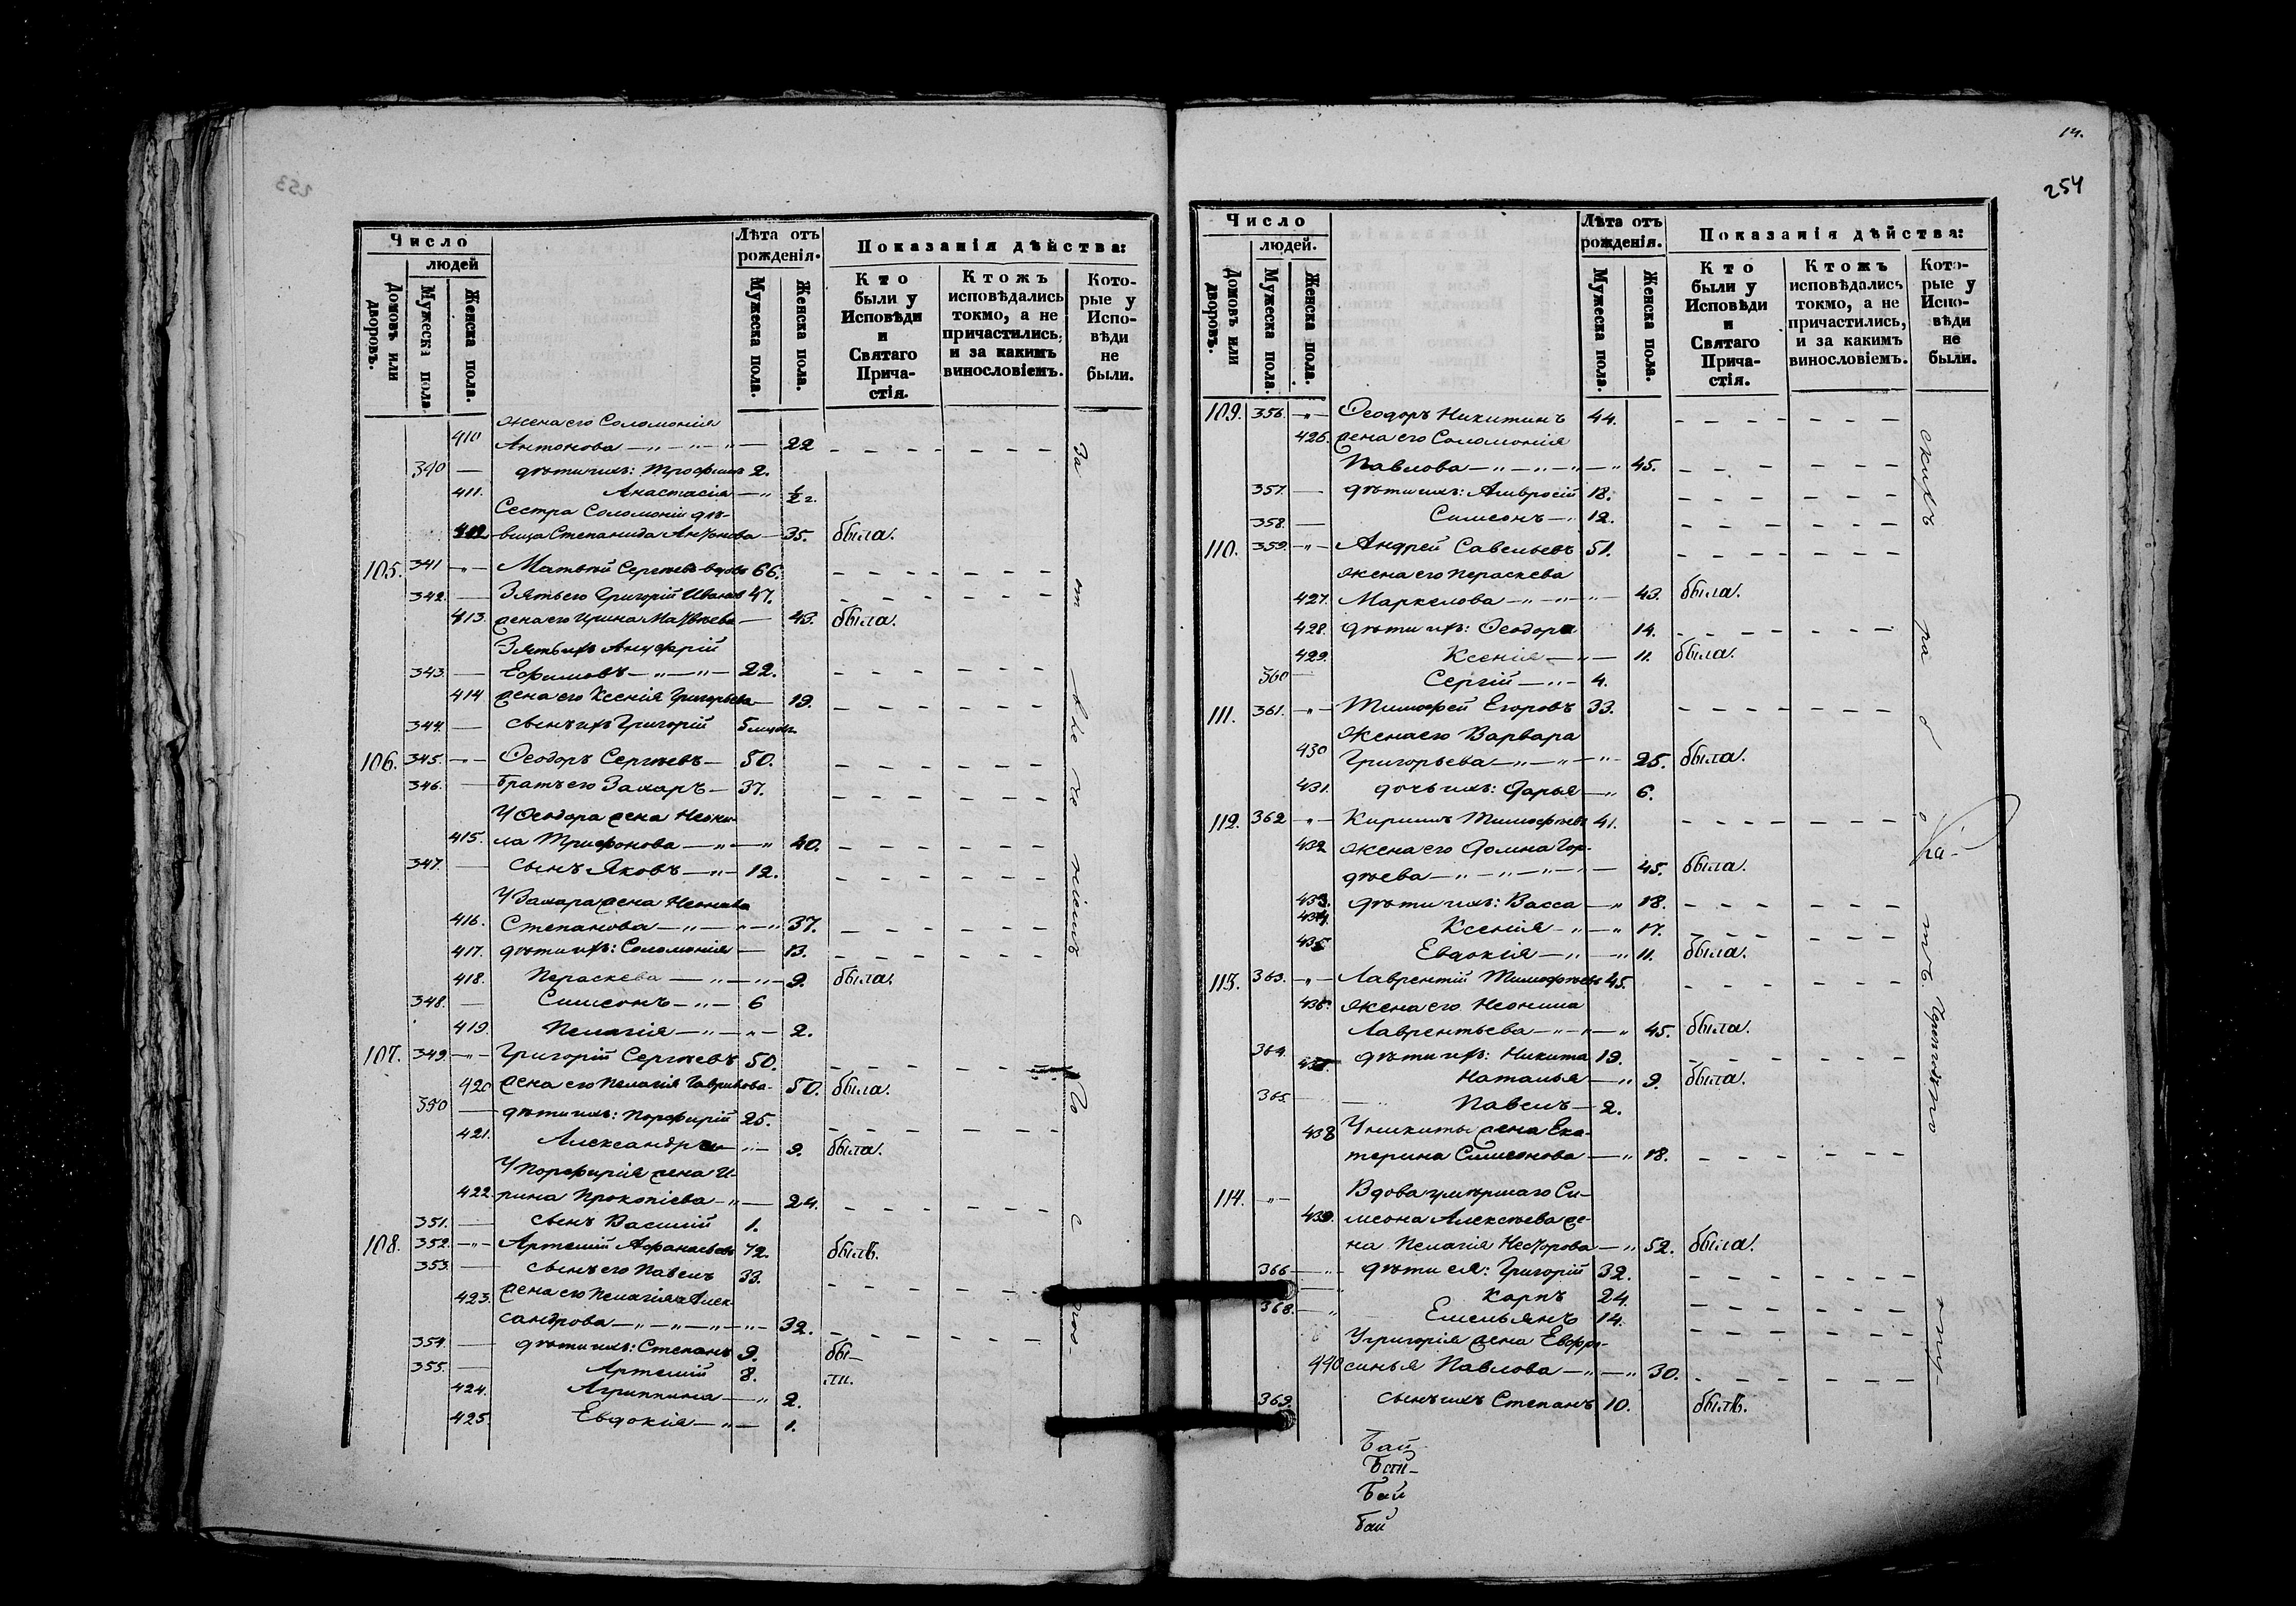 253
Число
людей
Домовъ или дворовъ.
Мужеска пола.
Женска пола.
Лѣта отъ рожденія.
Мужеска пола.
Женска пола.
Показанія дѣйства:
Кто были у Исповѣди и Святаго Прича-стія.
Ктожъ исповѣдались токмо, а не причастились, и за какимъ винословіемъ.
Кото-рые у Испо-вѣди не были.
жена его Соломонія
410 Антонова — 22
340 — дѣти ихъ: Трофимъ 2.
411. Анастасія — ½ г.
Сестра Соломоніи дѣ-
412 вица Степанида Антонова — 35. была.
105. 341 — Матвѣй Сергѣевъ вдовъ 66.
342. — Зять его Григорій Ивановъ 47.
413. жена его Ирина Матвѣева — 43. была.
Зять ихъ Ануфрій
343. — Ефимовъ — 22.
414 жена его Ксенія Григорьева — 19.
344. — сынъ ихъ Григорій
106. 345. — Ѳеодоръ Сергѣевъ — 50.
346. — Братъ его Захаръ — 37.
У Ѳеодора жена Неони-
415. ла Трифонова — 40.
347. — сынъ Яковъ — 12.
У Захара жена Неонила
416. Степанова — 37.
417. дѣти ихъ: Соломонія — 13.
418. Параскева — 9. была.
348. — Симеонъ — 6
419. Пелагія — 2.
107. 349. — Григорій Сергѣевъ 50.
420 жена его Пелагія Гаврилова — 50. была.
350 — дѣти ихъ: Порфирій 25.
421. Александра — 9. была.
У Порфирія жена И-
422 рина Прокопіева — 24.
351. — сынъ Василій 1.
108. 352. — Артемій Афанасьевъ 72. былъ.
353. — сынъ его Павелъ 33.
423. жена его Пелагія Алек-
сандрова — 32.
354. — дѣти ихъ: Степанъ 9. бы-
355. — Артемій 8. ли.
424. Агриппина — 2.
425. Евдокія — 1.
14.
254
Число
людей.
Домовъ или дворовъ.
Мужеска пола.
Женска пола.
Лѣта отъ рожденія.
Мужеска пола.
Женска пола.
Показанія дѣйства:
Кто были у Исповѣди и Святаго Прича-стія.
Ктожъ исповѣдались токмо, а не причастились, и за какимъ винословіемъ.
Кото-рые у Испо-вѣди не были.
109. 356. — Ѳеодоръ Никитинъ 44.
426. жена его Соломонія
Павлова — 45.
357. — дѣти ихъ: Амвросій 18.
358. — Симеонъ — 12.
110. 359. — Андрей Савельевъ 51.
жена его Параскева
427. Маркелова — 43. была.
428. дѣти ихъ: Ѳеодора 14.
429. Ксенія — 11. была.
360 Сергій — 4.
111. 361. — Тимофей Егоровъ 33.
жена его Варвара
430 Григорьева — 25. была.
431. дочь ихъ: Дарья — 6.
112. 362 — Кирилъ Тимофѣевъ 41.
432 жена его Домна Гор-
дѣева — 45. была.
433. дѣти ихъ: Васса — 18.
434. Ксенія — 17.
435 Евдокія — 11. была.
113. 363. — Лаврентій Тимофѣевъ 45.
436. жена его Неонила
Лаврентьева — 45. была.
364. дѣти ихъ: Никита 19.
437 Наталья — 9. была.
365. Павелъ — 2.
438 У Никиты жена Ека-
терина Симеонова — 18.
114. — Вдова умершаго Си-
439. меона Алексѣева же-
на Пелагія Несторова — 52. была.
366 — дѣти ея: Григорій 32.
Карпъ 24.
368. Емельянъ 14.
У Григорія жена Евфро-
440 синья Павлова — 30.
369. сынъ ихъ Степанъ 10. былъ.
Бай
Бай
Бай